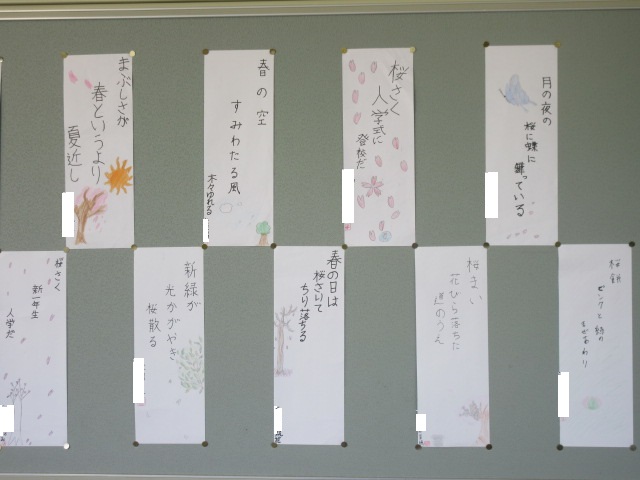 まぶしさが
春というより
夏近し
春の空
すみわたる風
木々ゆれる
桜さく
入学式に
登校だ
月の夜の
桜に蝶に
舞っている
桜さく
新一年生
入学だ
新緑が
光かがやき
桜散る
春の日は
桜ざいて
ちり落ちる
桜まい
花びら落ちた
道のうえ
桜餅
ピンクと緑の